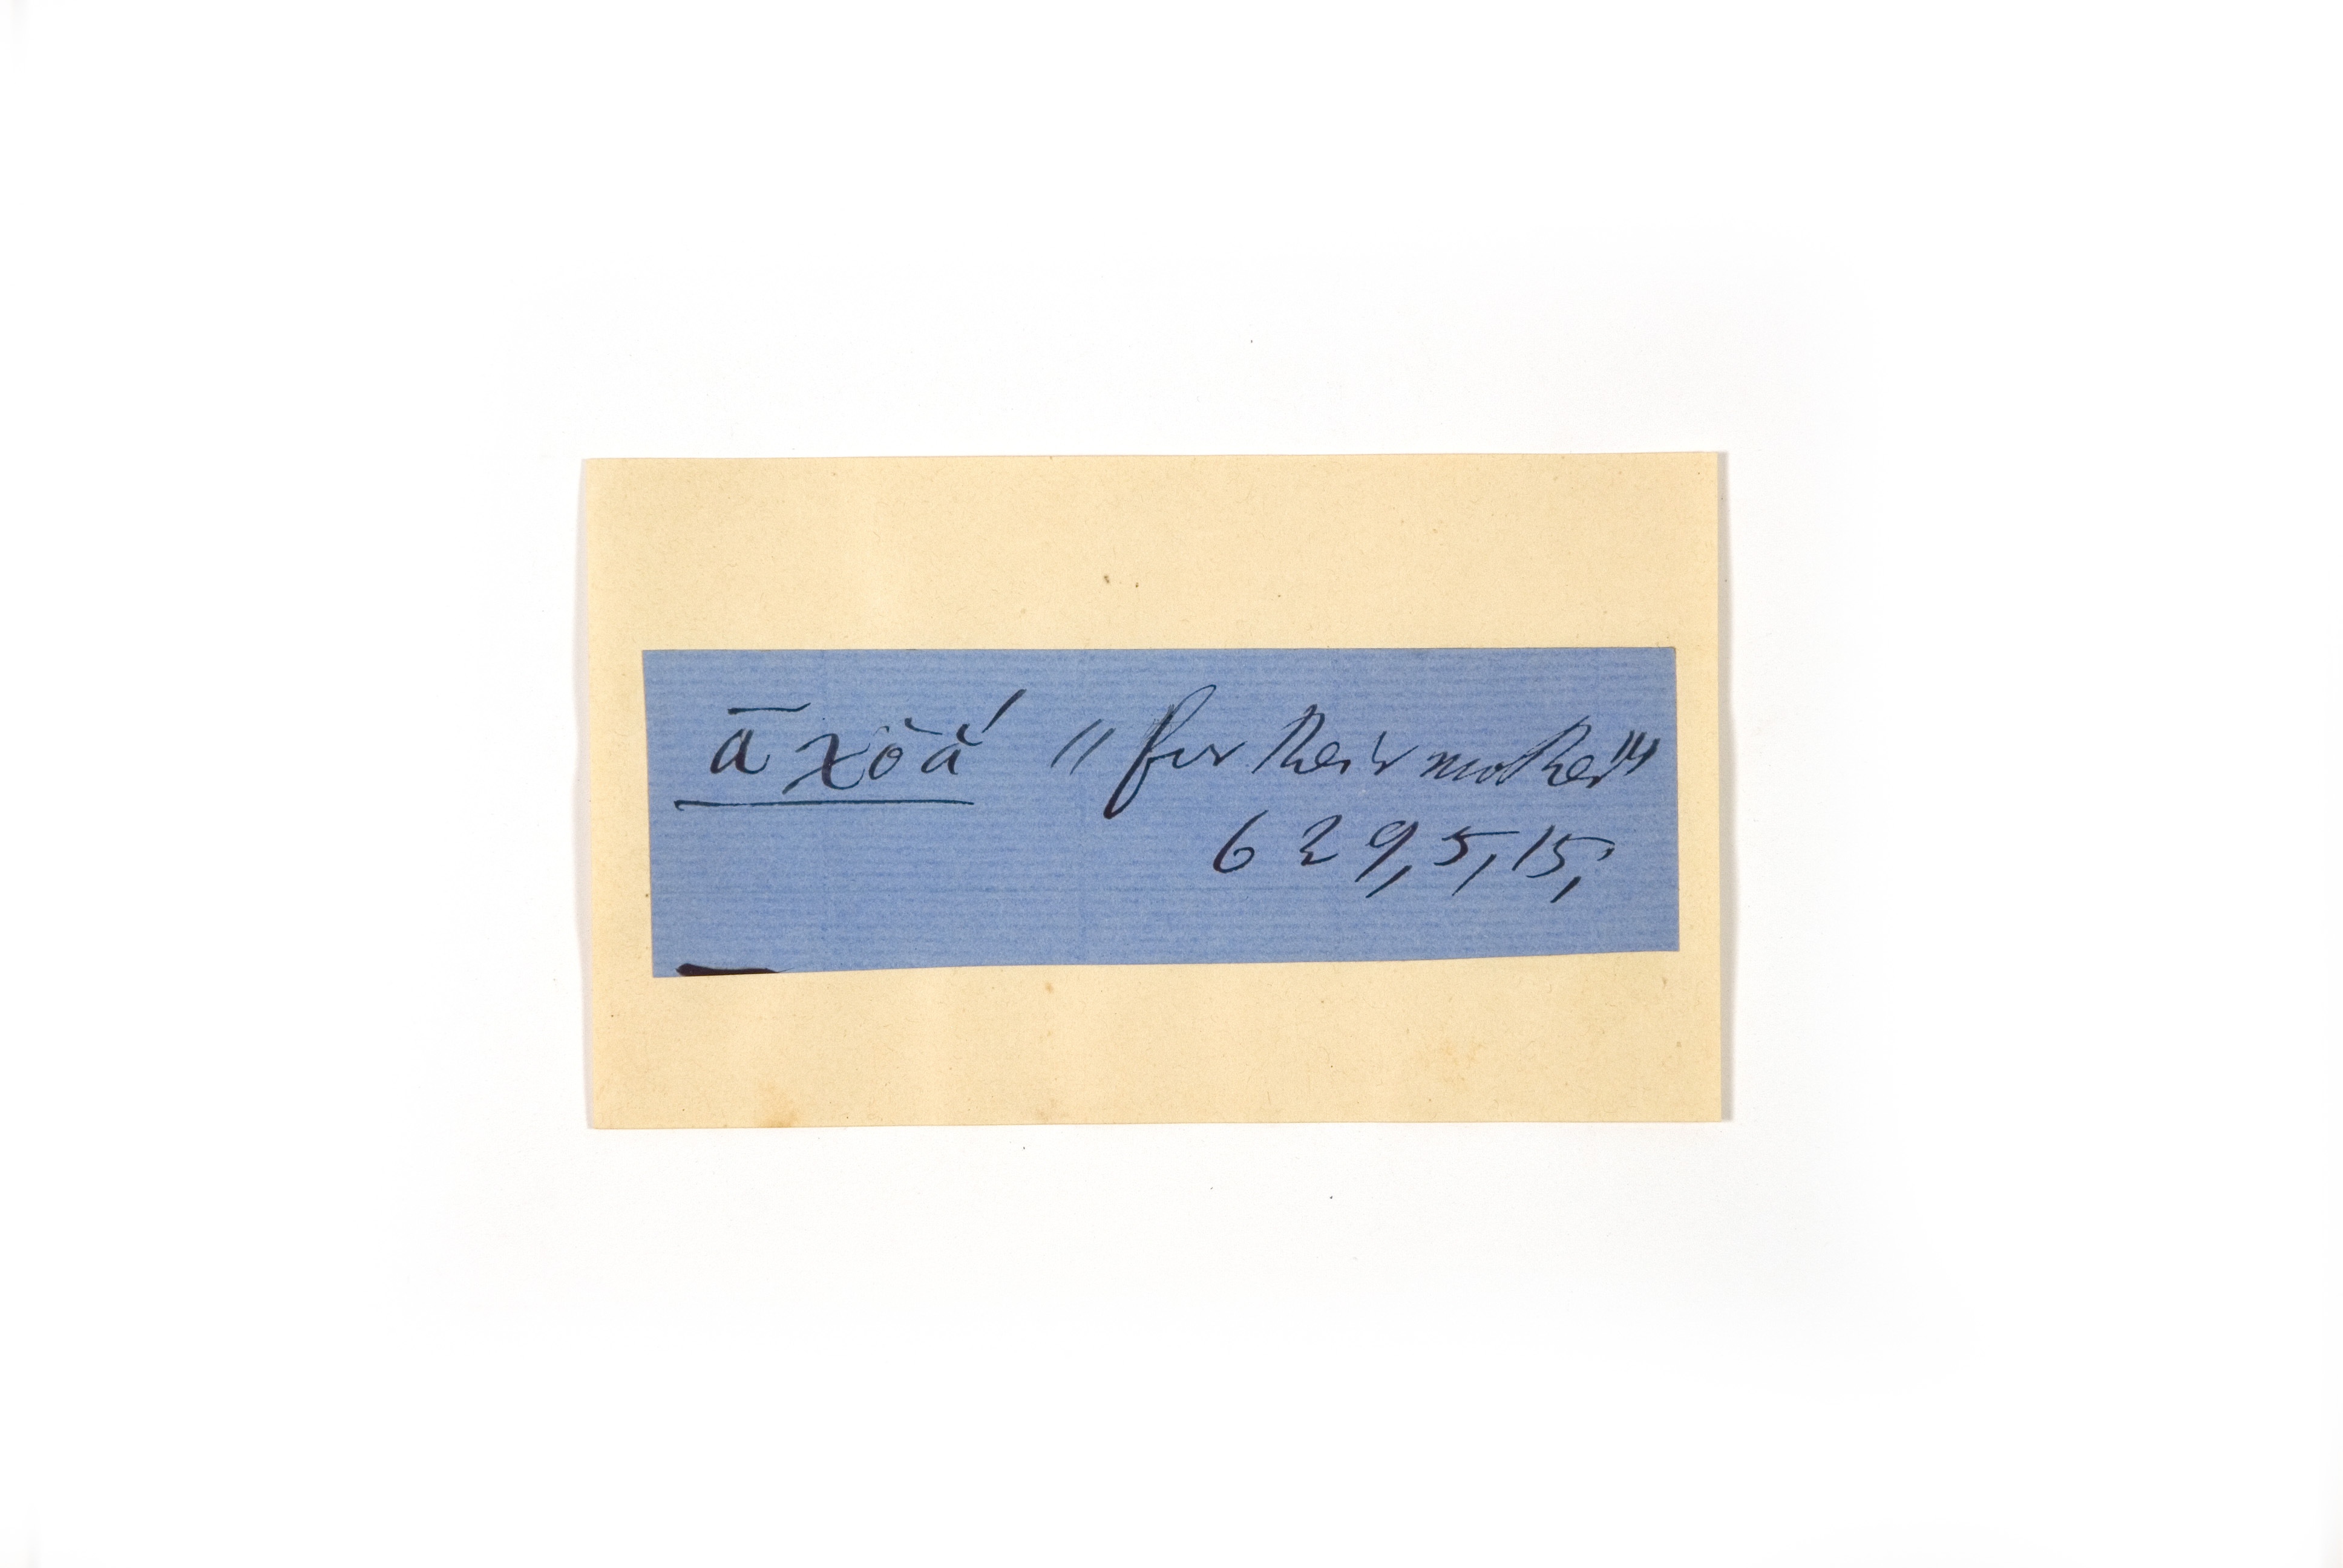 ā χŏắ "for their mother"
629,5,15,